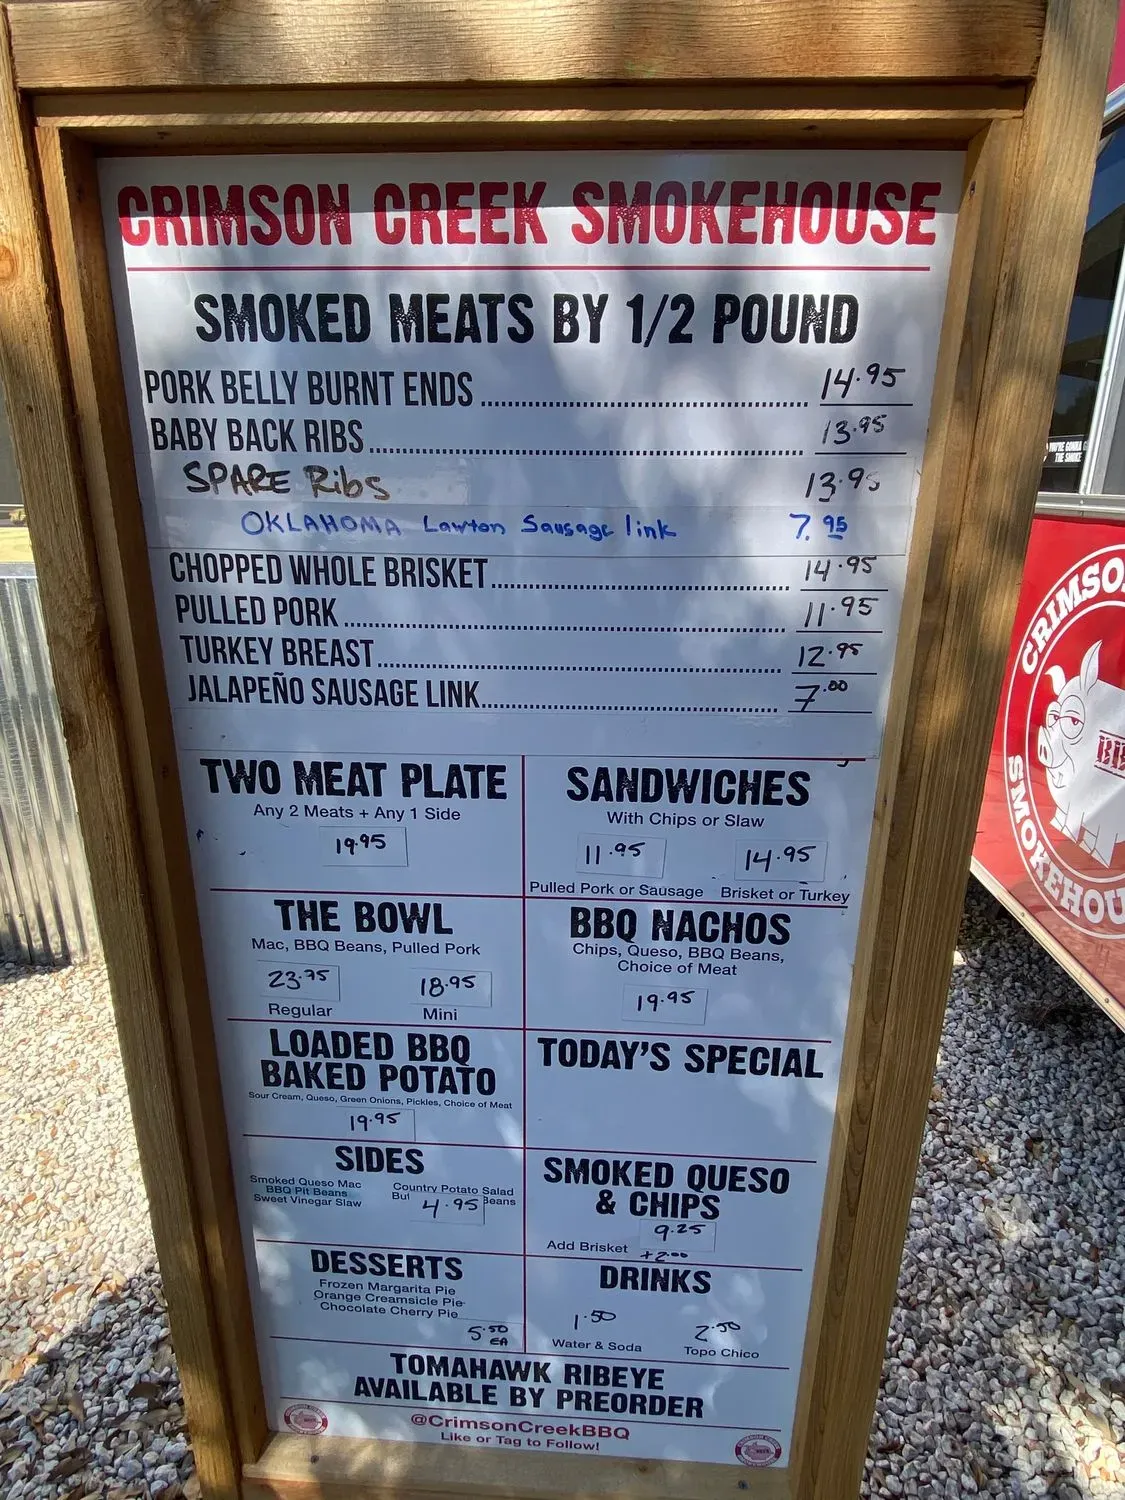 CRIMSON CREEK SMOKEHOUSE
SMOKED MEATS BY 1/2 POUND
PORK BELLY BURNT ENDS 14.95
BABY BACK RIBS 13.95
SPARE RiBS 13.95
OKLAHOMA Lawton Sausage link 7.95
CHOPPED WHOLE BRISKET 14.95
PULLED PORK 11.95
TURKEY BREAST 12.95
JALAPEÑO SAUSAGE LINK 7.00
TWO MEAT PLATE
Any 2 Meats + Any 1 Side
19.95
SANDWICHES
With Chips or Slaw
11.95 14.95
Pulled Pork or Sausage Brisket or Turkey
THE BOWL
Mac, BBQ Beans, Pulled Pork
23.75 18.95
Regular Mini
BBQ NACHOS
Chips, Queso, BBQ Beans,
Choice of Meat
19.95
LOADED BBQ
BAKED POTATO
Sour Cream, Queso, Green Onions, Pickles, Choice of Meat
19.95
TODAY'S SPECIAL
SIDES
Smoked Queso Mac Country Potato Salad
BBQ Pit Beans Beans
Sweet Vinegar Slaw
4.95
SMOKED QUESO
& CHIPS
9.25
Add Brisket +2.00
DESSERTS
Frozen Margarita Pie
Orange Creamsicle Pie
Chocolate Cherry Pie
5.50
EA
DRINKS
1.50 2.50
Water & Soda Topo Chico
TOMAHAWK RIBEYE
AVAILABLE BY PREORDER
@CrimsonCreekBBQ
Like or Tag to Follow!
CRIMSO
BB
SMOKEHOU